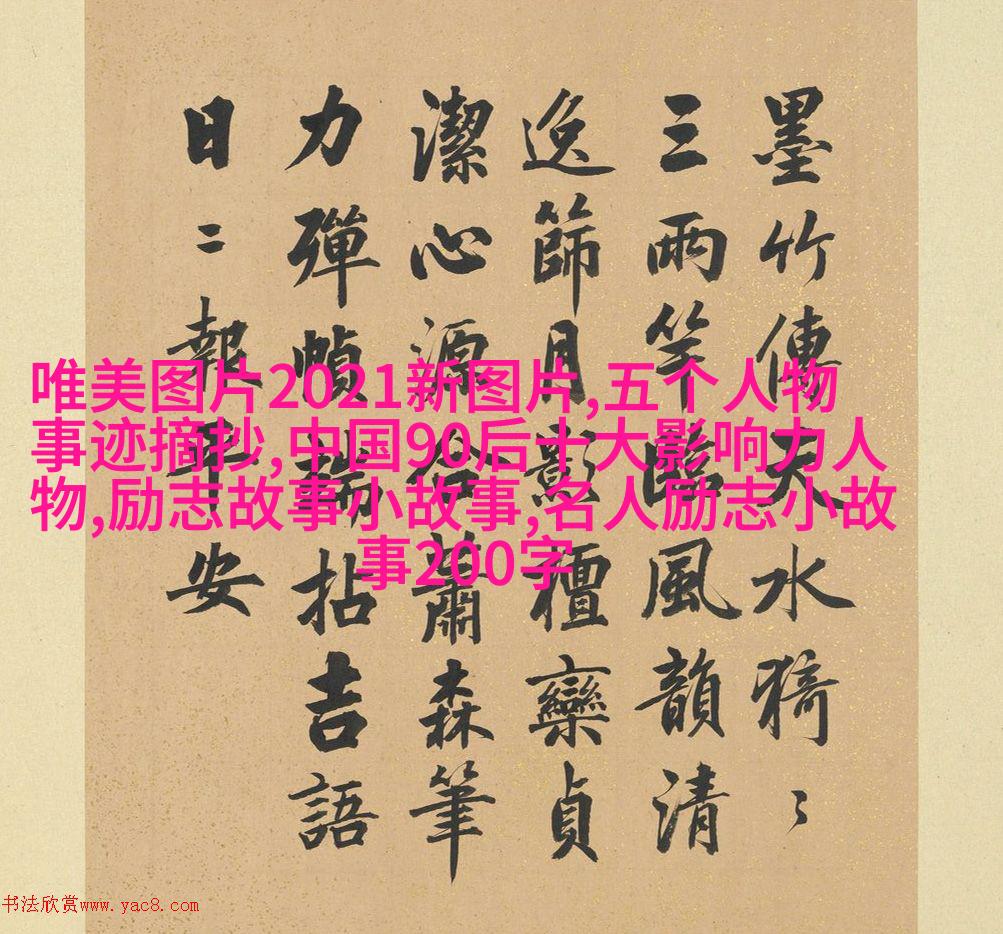 墨竹傳天水猗〻
三兩竿臨風韻清
逸篩月影檀欒貞
潔心源合蕭森筆
力彈幀端拈吉語
日二報平安
唯美图片2021新图片,五个人物
事迹摘抄,中国90后十大影响力人
物,励志故事小故事,名人励志小故
事200字
书法欣赏www.yac8.com